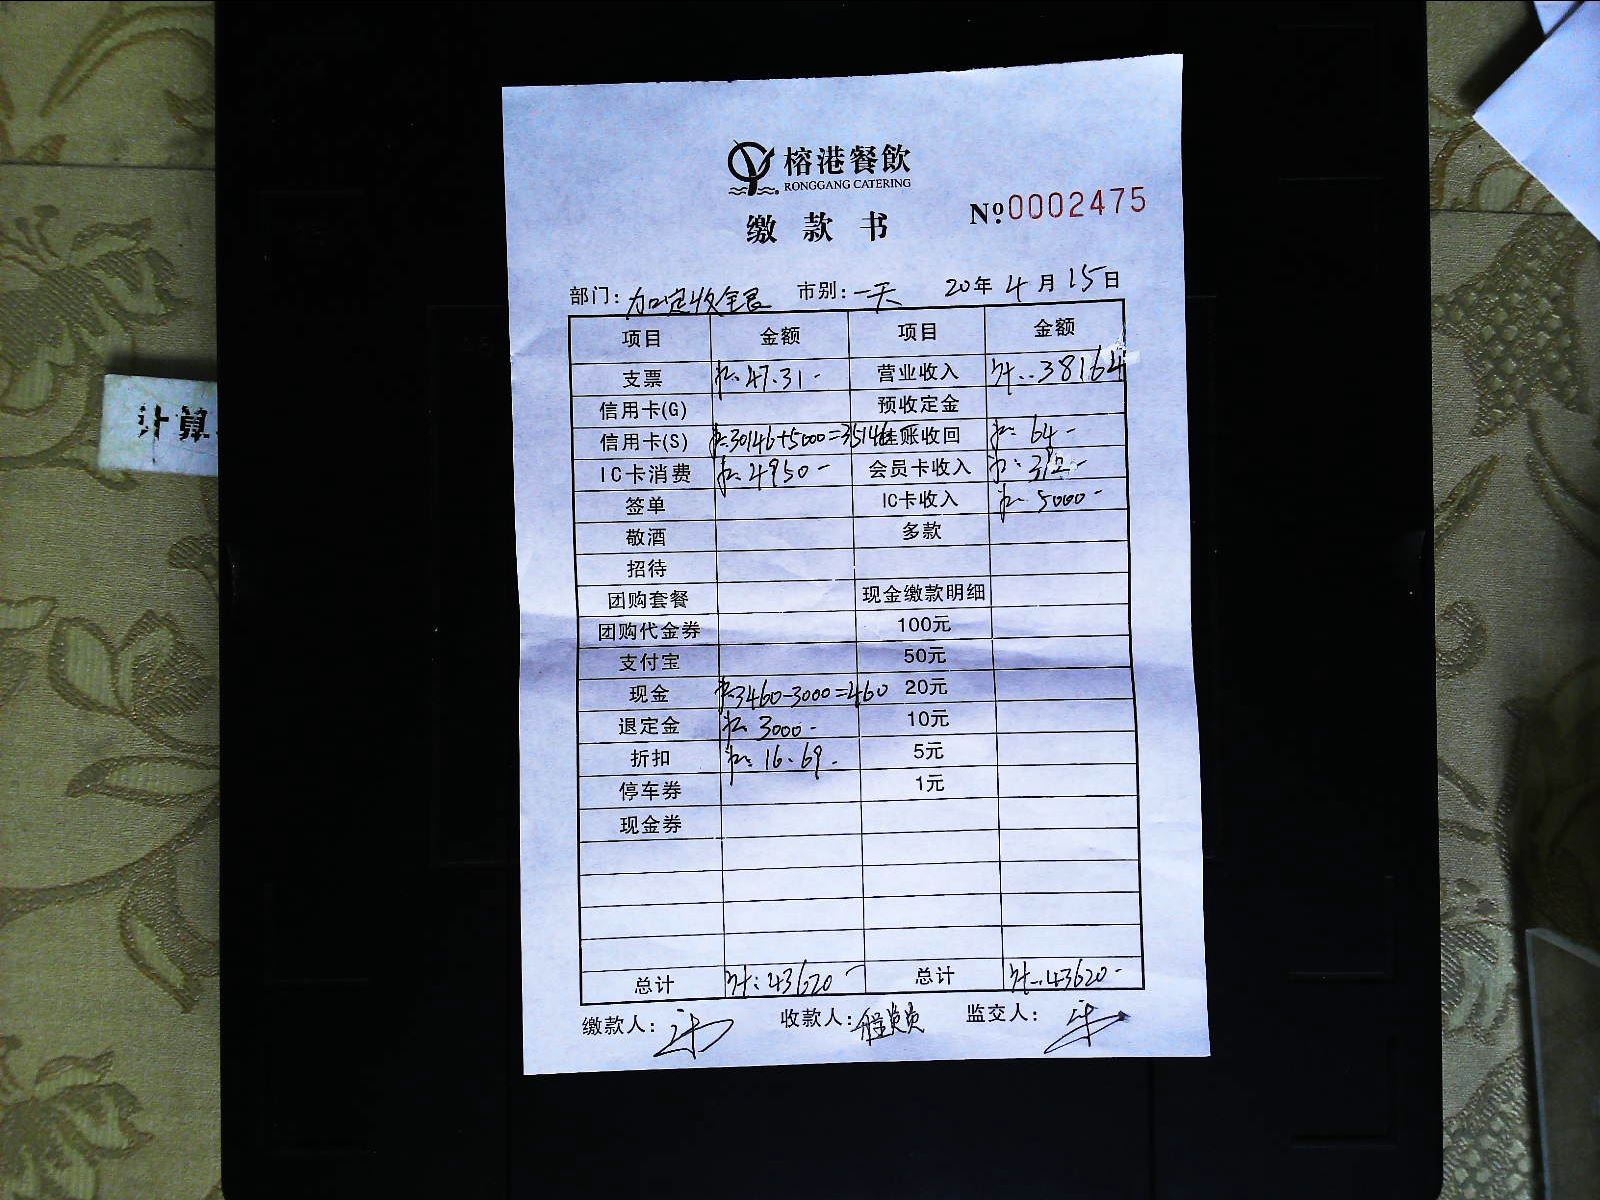 榕港餐飲
RONGGANG CATERING
缴款书 №0002475
部门: 加定收全 市别: 一天 20年4月15日
项目 金额 项目 金额
支票 47.31- 营业收入 38164
信用卡(G) 预收定金
信用卡(S) 30146+5000=35146 挂账收回 64-
IC卡消费 4950- 会员卡收入
签单 IC卡收入 5000-
敬酒 多款
招待
团购套餐 现金缴款明细
团购代金券 100元
支付宝 50元
现金 3460-3000=460 20元
退定金 3000- 10元
折扣 16.69. 5元
停车券 1元
现金券
总计 43620- 总计 43620-
缴款人: 收款人: 监交人:
计算